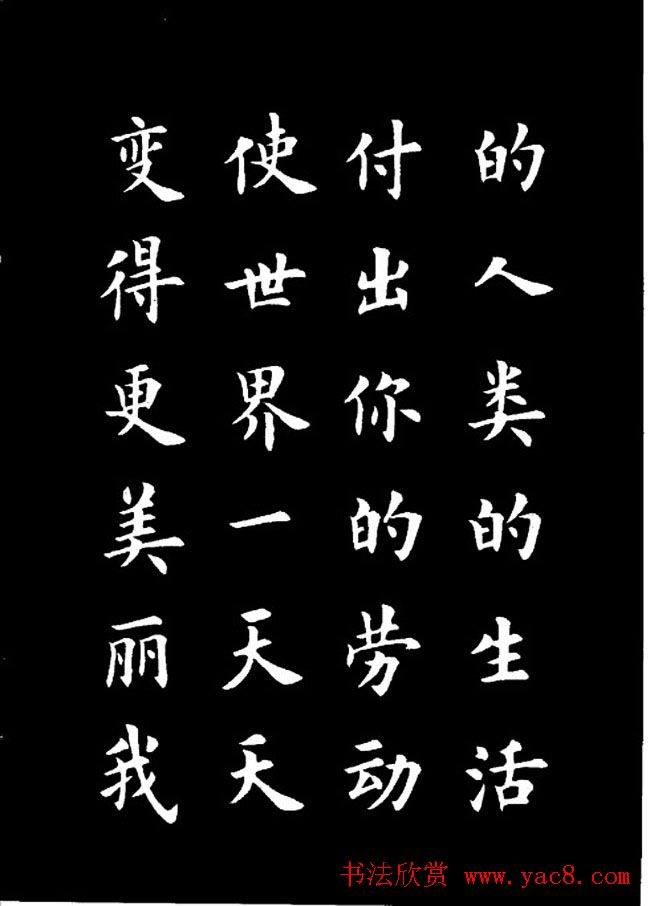 的人类的生活
付出你的劳动
使世界一天天
变得更美丽我
书法欣赏 www.yac8.com